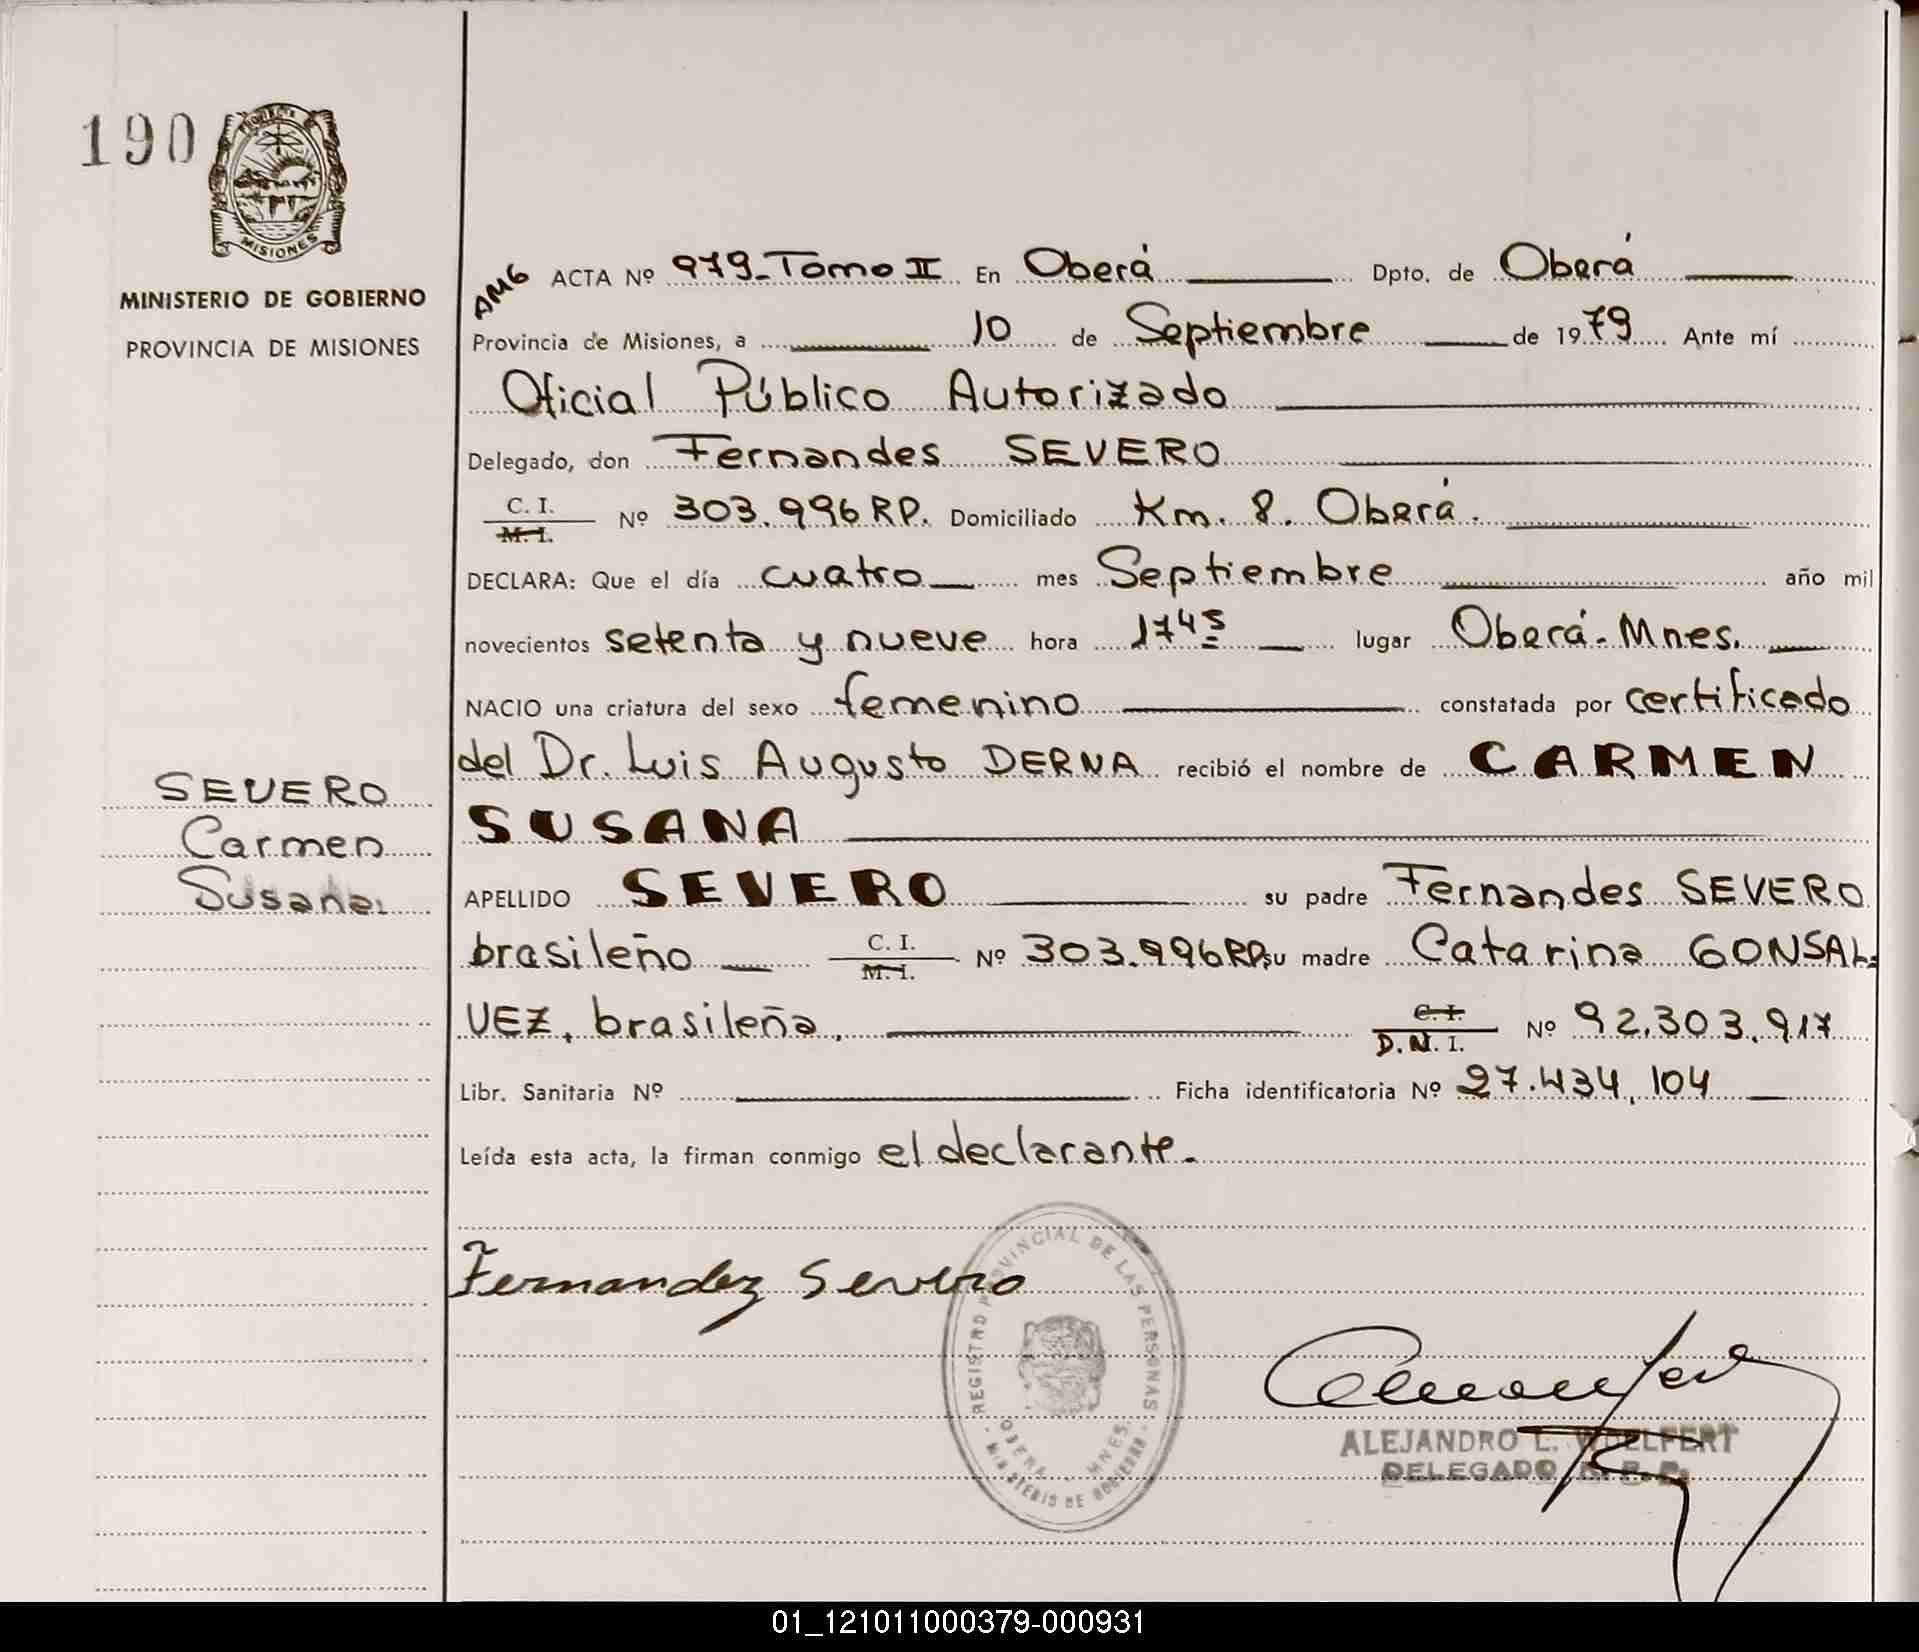 190
PROVINCIA DE
MISIONES
MINISTERIO DE GOBIERNO
PROVINCIA DE MISIONES
SEVERO
Carmen
Susana
AMG
ACTA Nº 979-Tomo II En Oberá Dpto. de Oberá
Provincia de Misiones, a 10 de Septiembre de 1979 Ante mí
Oficial Público Autorizado
Delegado, don Fernandes SEVERO
C. I.
M. I. Nº 303.996 RP. Domiciliado Km. 8. Oberá.
DECLARA: Que el día cuatro mes Septiembre año mil
novecientos setenta y nueve hora 1745 lugar Oberá-Mnes.
NACIO una criatura del sexo femenino constatada por certificado
del Dr. Luis Augusto DERNA recibió el nombre de CARMEN
SUSANA
APELLIDO SEVERO su padre Fernandes SEVERO
brasileño C. I.
M. I. Nº 303.996RP, su madre Catarina GONSAL=
VEZ, brasileña, C. I.
D.N.I. Nº 92.303.917
Libr. Sanitaria Nº Ficha identificatoria Nº 27.434.104
Leída esta acta, la firman conmigo el declarante.
Fernandez Severo
REGISTRO PROVINCIAL DE LAS PERSONAS
OBERA - MNES.
MINISTERIO DE GOBIERNO
ALEJANDRO L. WOELFERT
DELEGADO
01_121011000379-000931